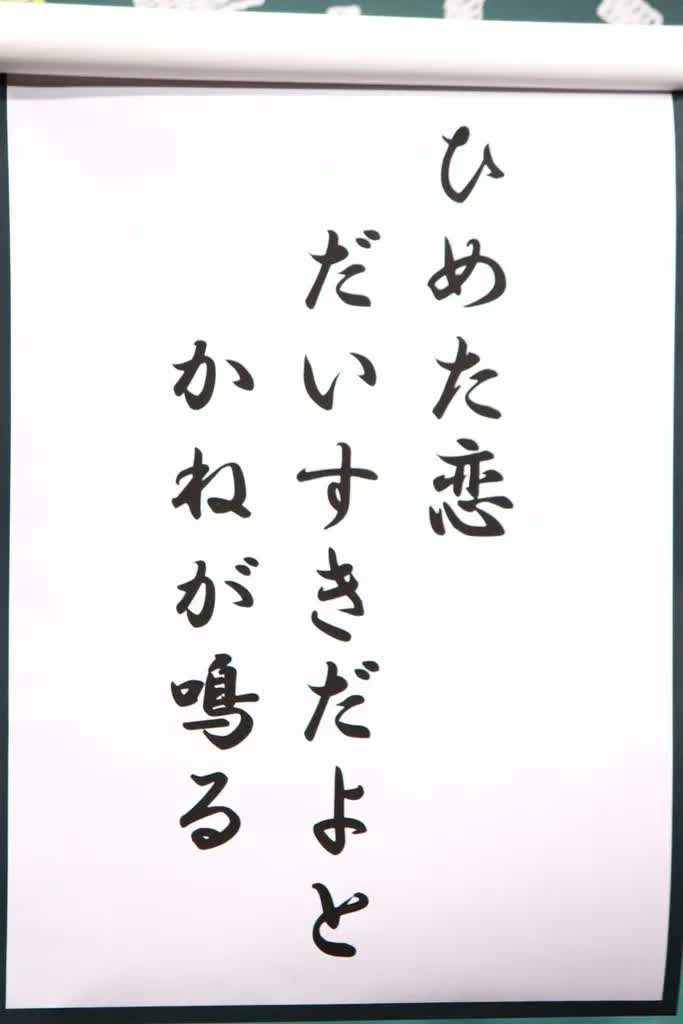 ひめた恋
だいすきだよと
かねが鳴る